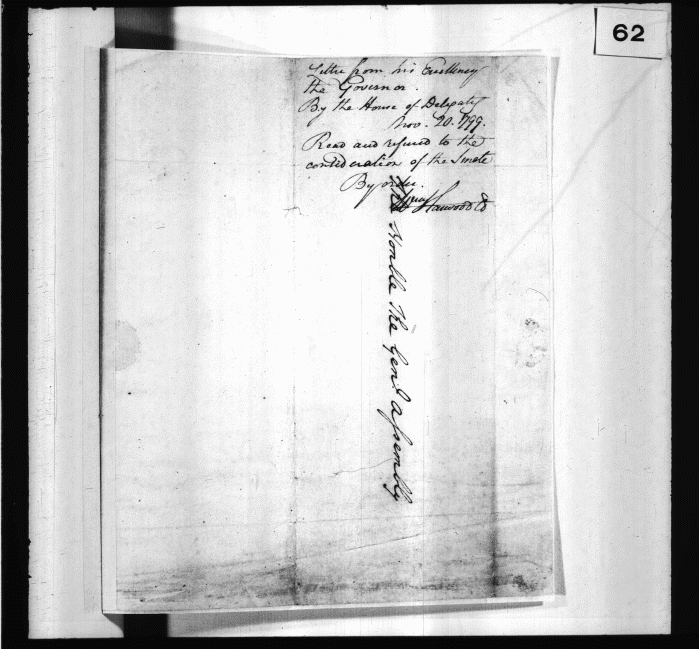 62
Letter from his Excellency
the Governor.
By the House of Delegates
Nov. 20. 1799.
Read and referred to the
consideration of the Senate
By order.
Harwood Cl
The Honble The Genl assembly